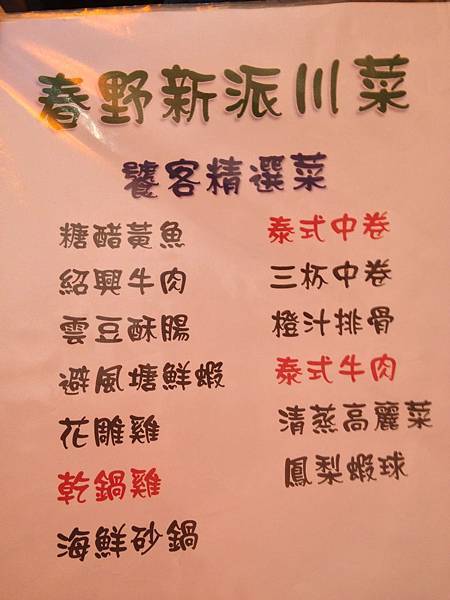 春野新派川菜
饕客精選菜
糖醋黃魚
紹興牛肉
雲豆酥腸
避風塘鮮蝦
花雕雞
乾鍋雞
海鮮砂鍋
泰式中卷
三杯中卷
橙汁排骨
泰式牛肉
清蒸高麗菜
鳳梨蝦球